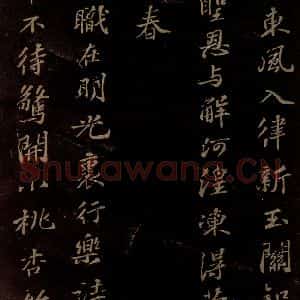 東風入律新玉關
聖恩与解河湟凍得
春
職在明光裏行樂
不待驚開小桃杏
Shufawang.CN